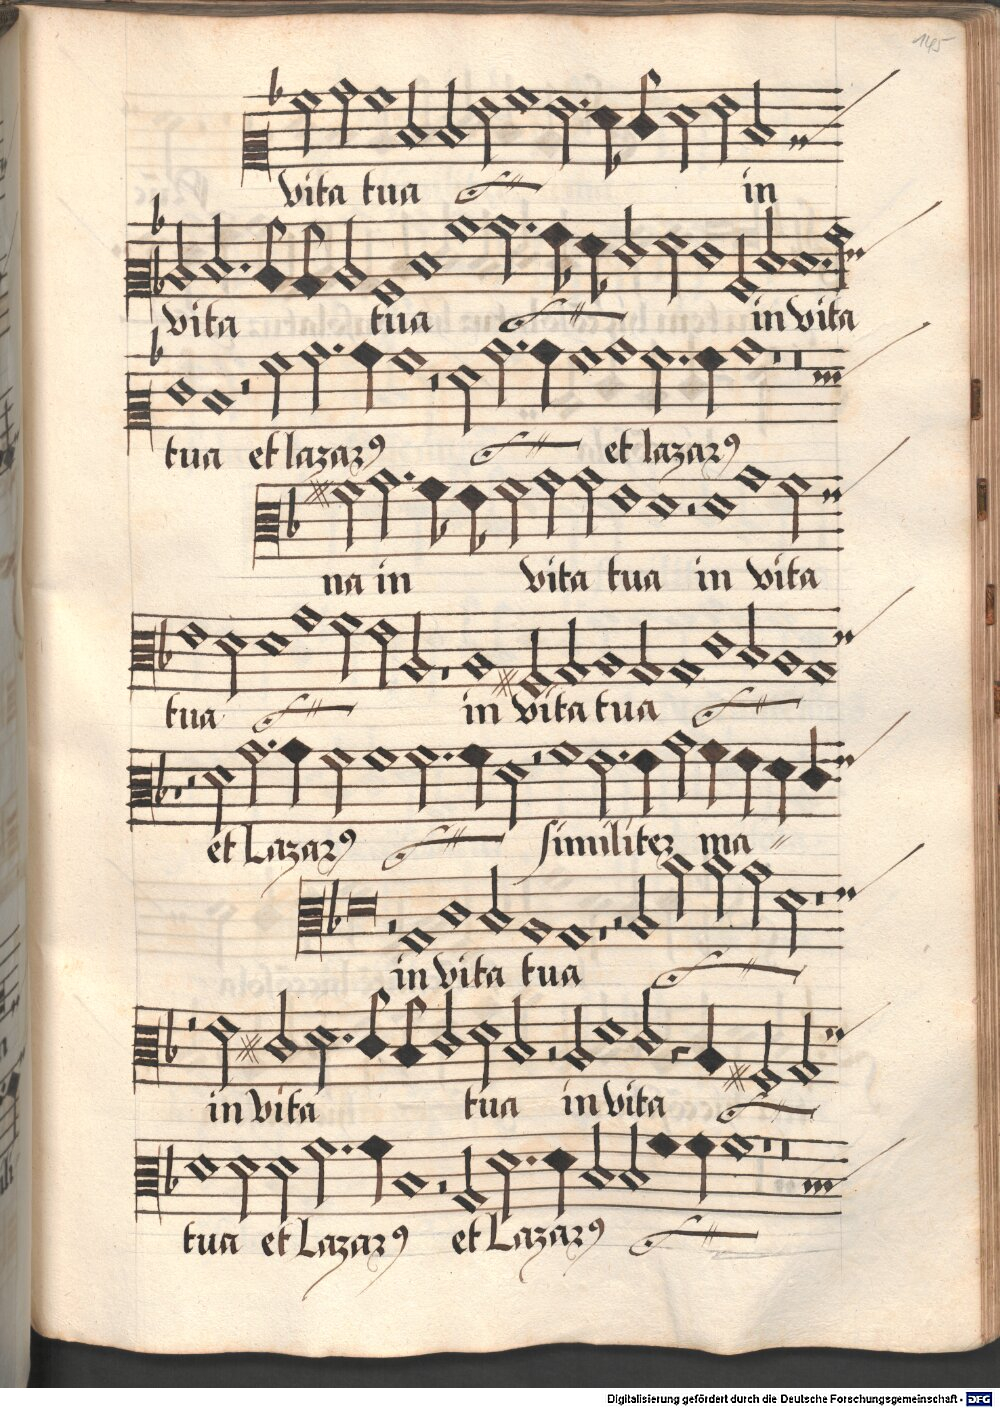 145
vita tua in
vita tua in vita
tua et lazarꝰ et lazarꝰ
na in vita tua in vita
tua in vita tua
et Lazarꝰ similiter ma〃
in vita tua
in vita tua in vita
tua et Lazarꝰ et Lazarꝰ
Digitalisierung gefördert durch die Deutsche Forschungsgemeinschaft - DFG